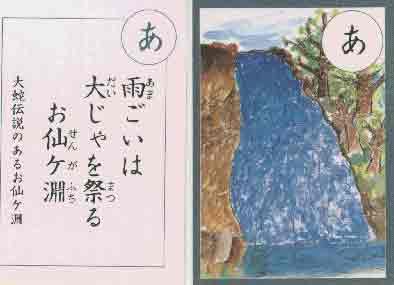 あ
雨ごいは
大じゃを祭る
お仙ケ淵
大蛇伝説のあるお仙ケ淵
あ